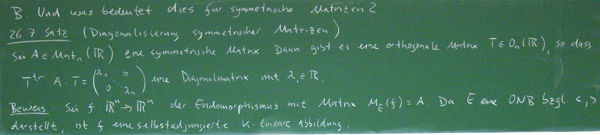 B. Und was bedeutet dies für symmetrische Matrizen?
26.7 Satz (Diagonalisierung symmetrischer Matrizen)
Sei A ∈ Mat_n(ℝ) eine symmetrische Matrix. Dann gibt es eine orthogonale Matrix T ∈ O_n(ℝ), so dass
T^tr A · T = (λ_1 0 / 0 λ_n) eine Diagonalmatrix mit λ_i ∈ ℝ.
Beweis Sei f ℝ^n → ℝ^n der Endomorphismus mit Matrix M_E(f) = A. Da E eine ONB bzgl. < , >
darstellt, ist f eine selbstadjungierte K-lineare Abbildung.